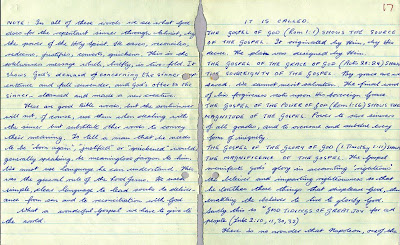 NOTE: In all of these words we see what God
does for the repentant sinner through Christ, by
the power of the Holy Spirit. He saves, reconciles,
redeems, justifies, converts, quickens. This is the
message which, briefly, is two-fold. It
shows God's demand of concerning the sinner
and full surrender, and God's offer to the
sinner
These are good Bible words, but the
will not, of course, use them when dealing with
the sinner, but substitute other words to convey
their meaning. To tell a man that he needs
to be "born again", "justified" or "quickened" would,
generally speaking, be meaningless jargon to him.
We must use language he can understand. This
was the general rule of the Lord Jesus. He used
simple, plain language to lead souls to deliver-
ance from sin and to reconciliation with God.
What a wonderful gospel we have to give to
the world.
17
IT IS CALLED.
THE GOSPEL OF GOD (Rom 1:1) SHOWS THE SOURCE
OF THE GOSPEL. It originated by Him, by His
The plan was designed by Him.
THE GOSPEL OF THE GRACE OF GOD (Acts 20:24) SHOWS
THE SOVEREIGNTY OF THE GOSPEL. By grace are we
saved. We cannot merit salvation. The fount and
of sin forgiveness rests upon His Sovereign Grace
THE GOSPEL OF THE POWER OF GOD (Rom 1:16) SHOWS THE
MAGNITUDE OF THE GOSPEL. Power to save sinners
of all grades, and to overcome and subdue every
form of iniquity.
THE GOSPEL OF THE GLORY OF GOD (1 Timothy 1:11) SHOWS
THE MAGNIFICENCE OF THE GOSPEL. The Gospel
manifests God's glory in
the believer and imparting righteousness so that
he loathes those things that displease God, thus
enabling the believer to live to glorify God.
Surely this is "GOOD TIDINGS OF GREAT JOY for all
people (Luke 2:10, 11, 30, 32)
There is no wonder that Napoleon, one of the